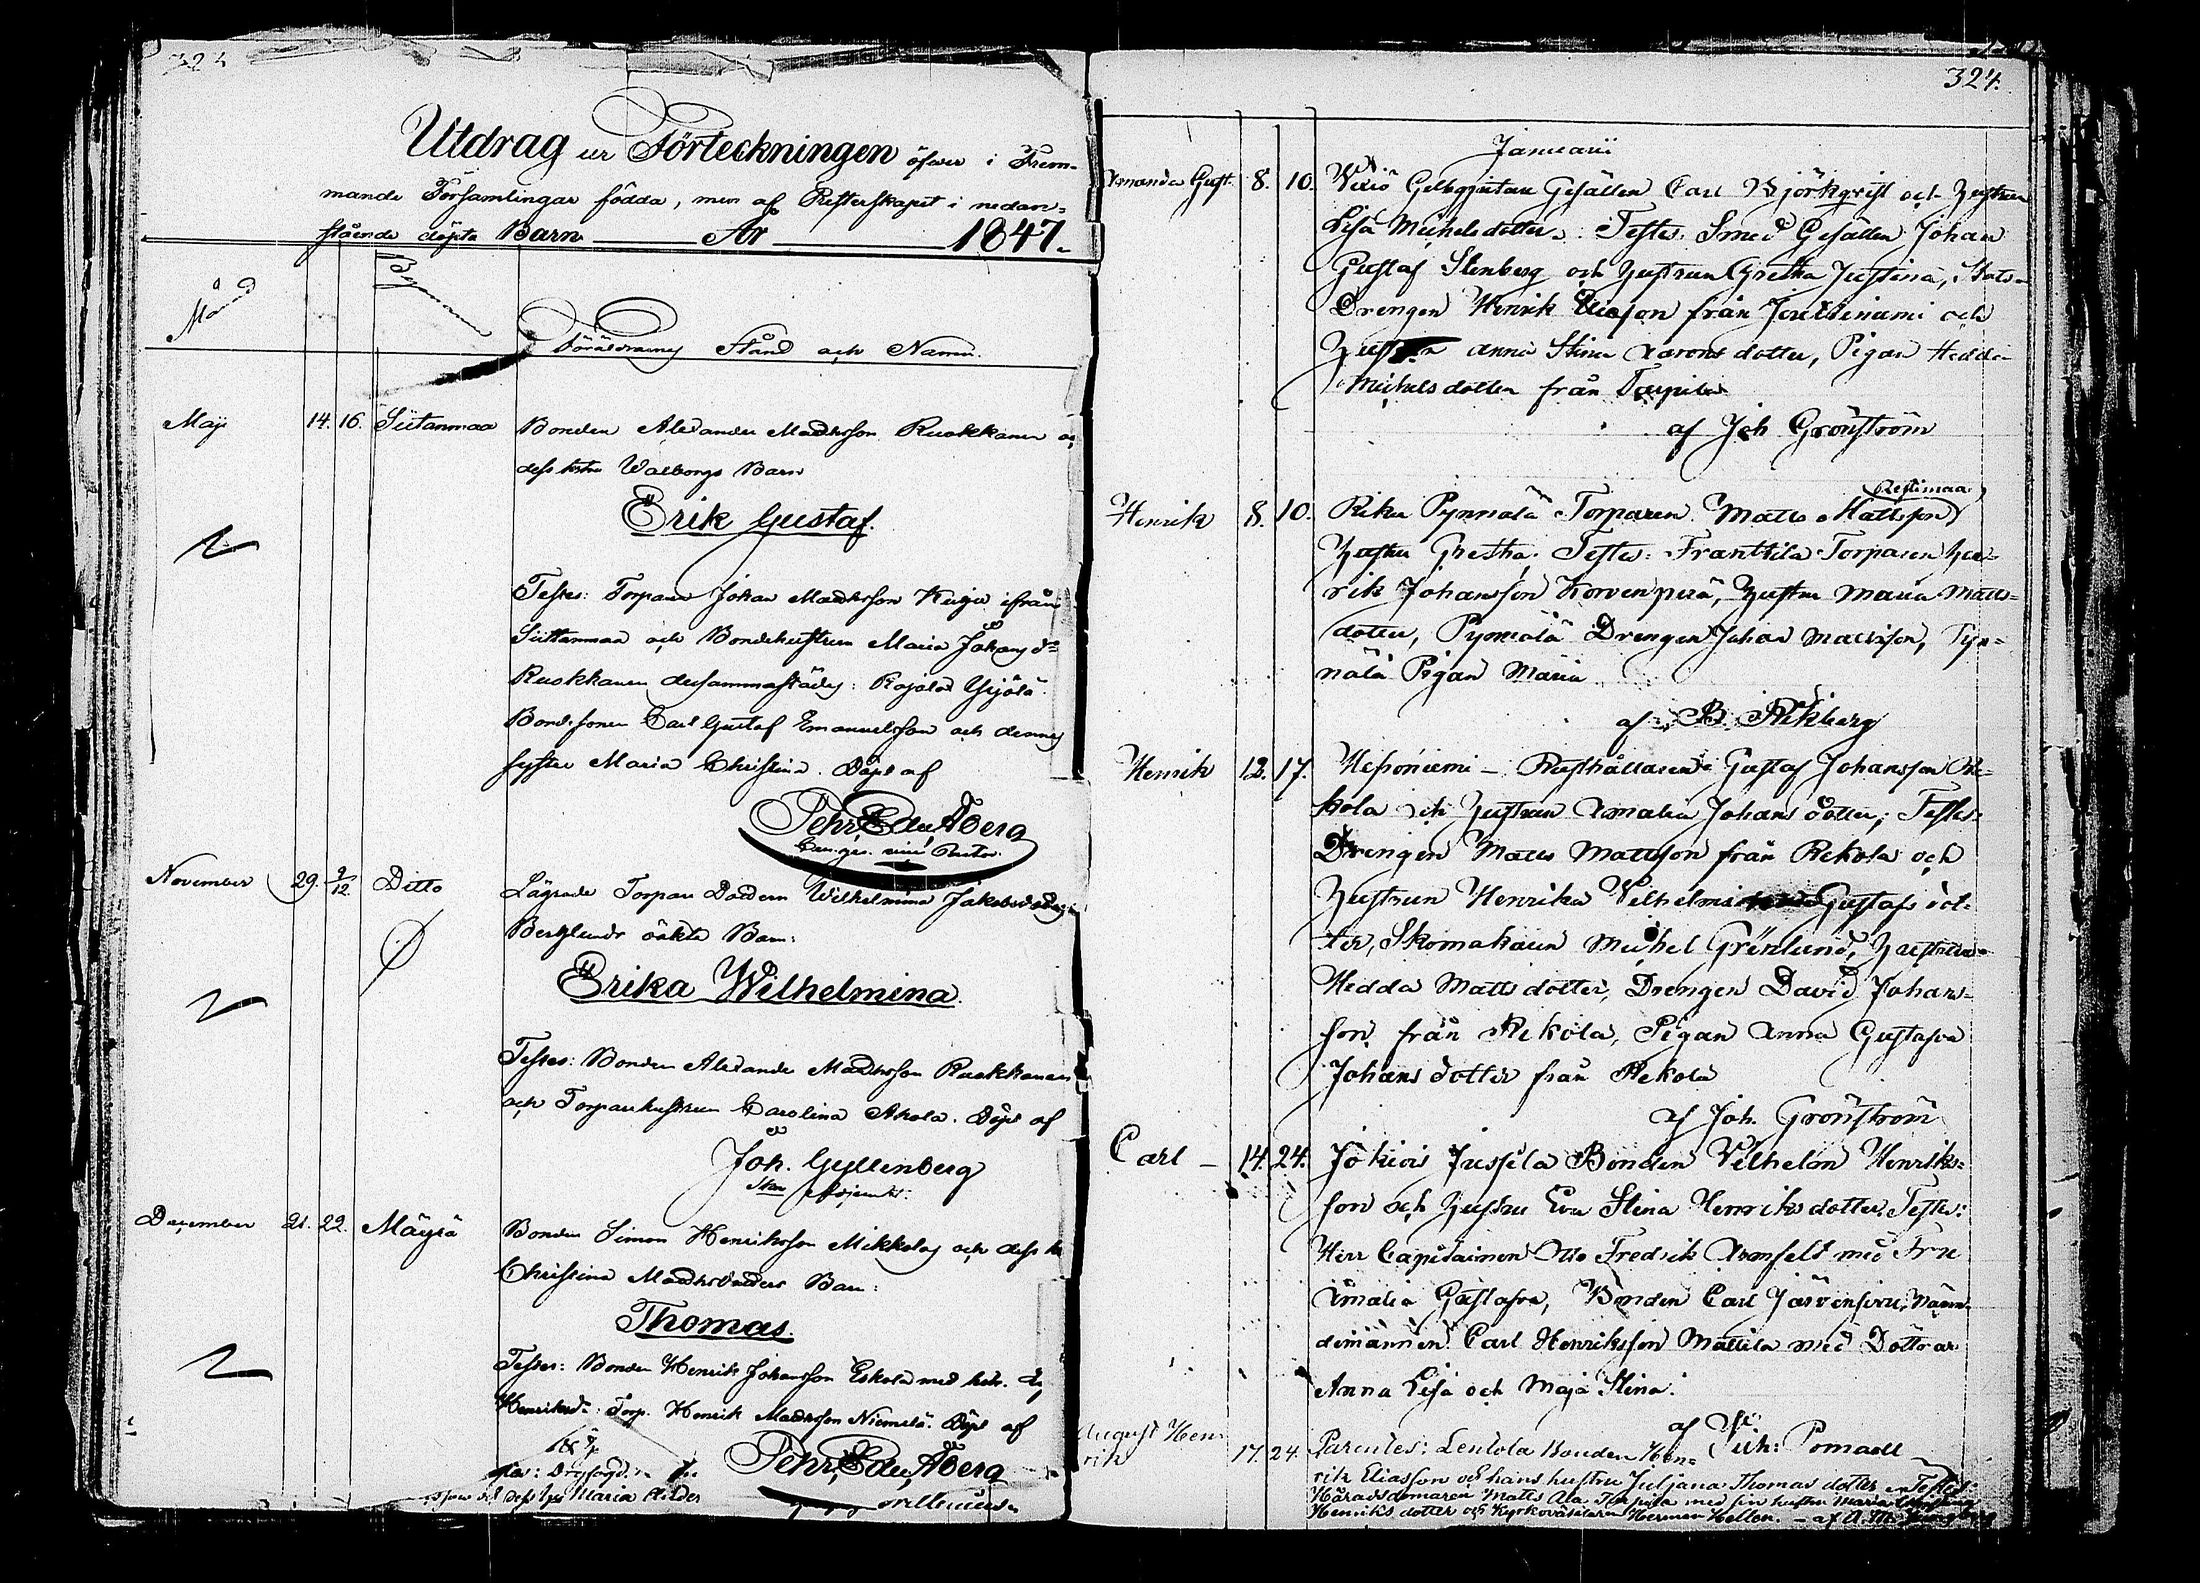 324
Utdrag ur Förteckningen öfwer i Frem-
mande Församlingar födda, men af Presterskapet i nedan-
stående döpta Barn År 1847.
Månad
Föräldrarnes Stånd och Namn.
Maji 14. 16. Siitanmaa Bonden Alexander Mathsson Ruokkanen o
dess hustru Walborgs Barn
Erik Gustaf.
Testes: Torparen Johan Mathsson Kuja ifrån
Siittanmaa och Bondehustrun Maria Johans dr
Ruokkanen dersammastädes: Rajalas Yrjölä
Bondesonen Carl Gustaf Emanuelsson och dennes
syster Maria Christina. Döpt af
Pehr Edv. Åberg
November 29. 2/12 Ditto Lägrade Torpare Dottern Wilhelmina Jakobsdotter
Berglunds oäkta Barn:
Erika Wilhelmina.
Testes: Bonden Alexander Mathsson Ruokkanen
och Torparehustrun Carolina Ahola. Döpt af
Joh. Gyllenberg
December 21. 22. Mäyrä Bonden Simon Henriksson Mikkolas och dess h
Christina Mathsdotters Barn:
Thomas.
Testes: Bonden Henrik Johansson Eskola med hstr.
Henriksdr: Torp. Henrik Mathsson Niemelä. Döpt af
Pehr Edv. Åberg
Maria
324.
Januarii
Amanda Gust. 8. 10. Gelbgjutare Gesällen Carl Björkqvist och Hustrun
Lisa Michelsdotter. Testes. Smed Gesällen Johan
Gustaf Stenberg och Hustrun Gretha Justina, Stats-
Drengen Henrik Eliasson från Jouttiniemi och
Hustrun Anna Stina Aarons dotter, Pigan Hedda
Michelsdotter från Torpila
af Joh Grönström
Restimaa
Henrik 8. 10. Rika Pynnälä Torparen Matts Mattsson
Hustru Gretha, Testes: Franttila Torparen Hen-
rik Johansson Korvenperä, Hustru Maria Matts-
dotter, Pynnälä Drengen Johan Mattsson, Pyn-
nälä Pigan Maria
af B. Rikberg
Henrik 12. 17. Hessoniemi - Rusthållaren Gustaf Johansson Re-
kola och Hustrun Amalia Johans dotter; Testes:
Drengen Matts Mattsson från Rekola och
Hustrun Henrika Vilhelmina Gustafs dot-
ter, Skomakaren Michel Grönlund, Hustrun
Hedda Mattsdotter, Drengen David Johans-
son från Rekola, Pigan Anna Gustafva
Johansdotter från Rekola
af Joh. Grönström
Carl - 14. 24. Jokiois Jussila Bonden Vilhelm Henriks-
son och Hustru Eva Stina Henriksdotter. Testes:
Herr Capitainen Otto Fredrik Armfelt med Fru
Amalia Gustafva, Bonden Carl Järvensivu, Nämn-
demannen Carl Henriksson Mattila med Dottrar
Anna Lisa och Maja Stina.
af Vik: Pomoell
August Hen-
rik 17. 24. Parentes: Lentola Bonden Hen-
rik Eliasson och hans hustru Juljana Thomas dotter. Testes:
Häradsdomaren Matts Ala med sin hustru Maria
Henriksdotter och Kyrkoväktaren Herman Hellen. - af